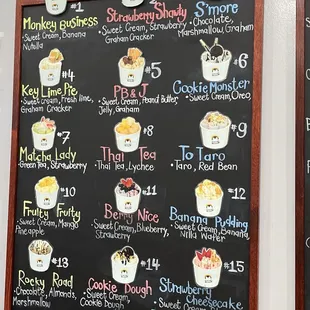 #1
Monkey Business
•Sweet Cream, Banana
Nutella
Strawberry Shawty
•Sweet Cream, Strawberry
Graham Cracker
S'more
•Chocolate,
Marshmallow, Graham
#4
Key Lime Pie
•Sweet Cream, Fresh lime,
Graham Cracker
#5
PB & J
•Sweet Cream, Peanut Butter
Jelly, Graham
#6
Cookie Monster
•Sweet Cream, Oreo
#7
Matcha Lady
•Green Tea, Strawberry
#8
Thai Tea
•Thai Tea, Lychee
#9
To Taro
•Taro, Red Bean
#10
Fruity Fruity
•Sweet Cream, Mango
Pineapple
#11
Berry Nice
•Sweet Cream, Blueberry,
Strawberry
#12
Banana Pudding
•Sweet Cream, Banana,
Nilla Wafer
#13
Rocky Road
•Chocolate, Almonds,
Marshmallow
#14
Cookie Dough
•Sweet Cream,
Cookie Dough
#15
Strawberry
Cheesecake
•Sweet Cream,